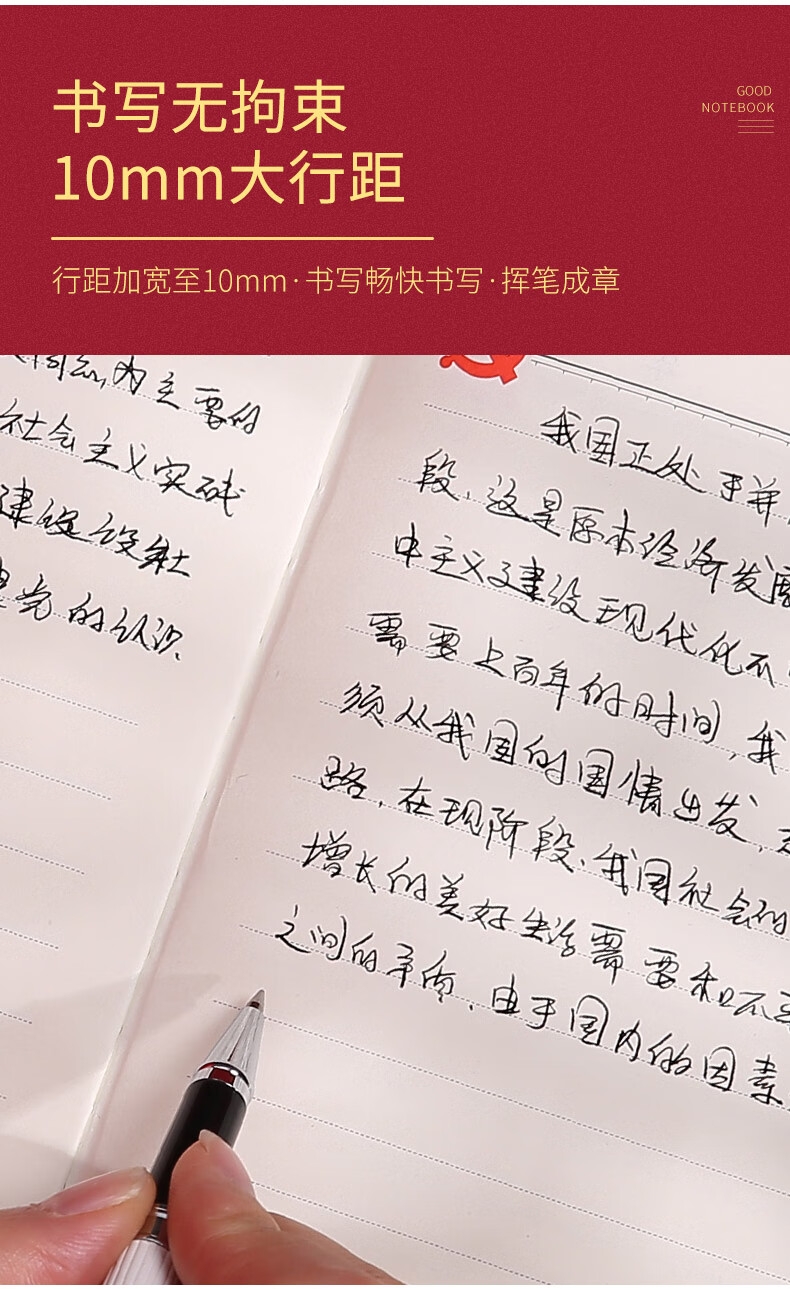 书写无拘束
10mm大行距
GOOD
NOTEBOOK
行距加宽至10mm·书写畅快书写·挥笔成章
为主要的
社会主义实践
建设设社
党的认识
我国正处于并
段,这是原本经济发展
中主义建设现代化不
需要上百年的时间,我
须从我国的国情出发,
路,在现阶段,我国社会的
增长的美好生活需要和不
之间的矛盾,由于国内的因素